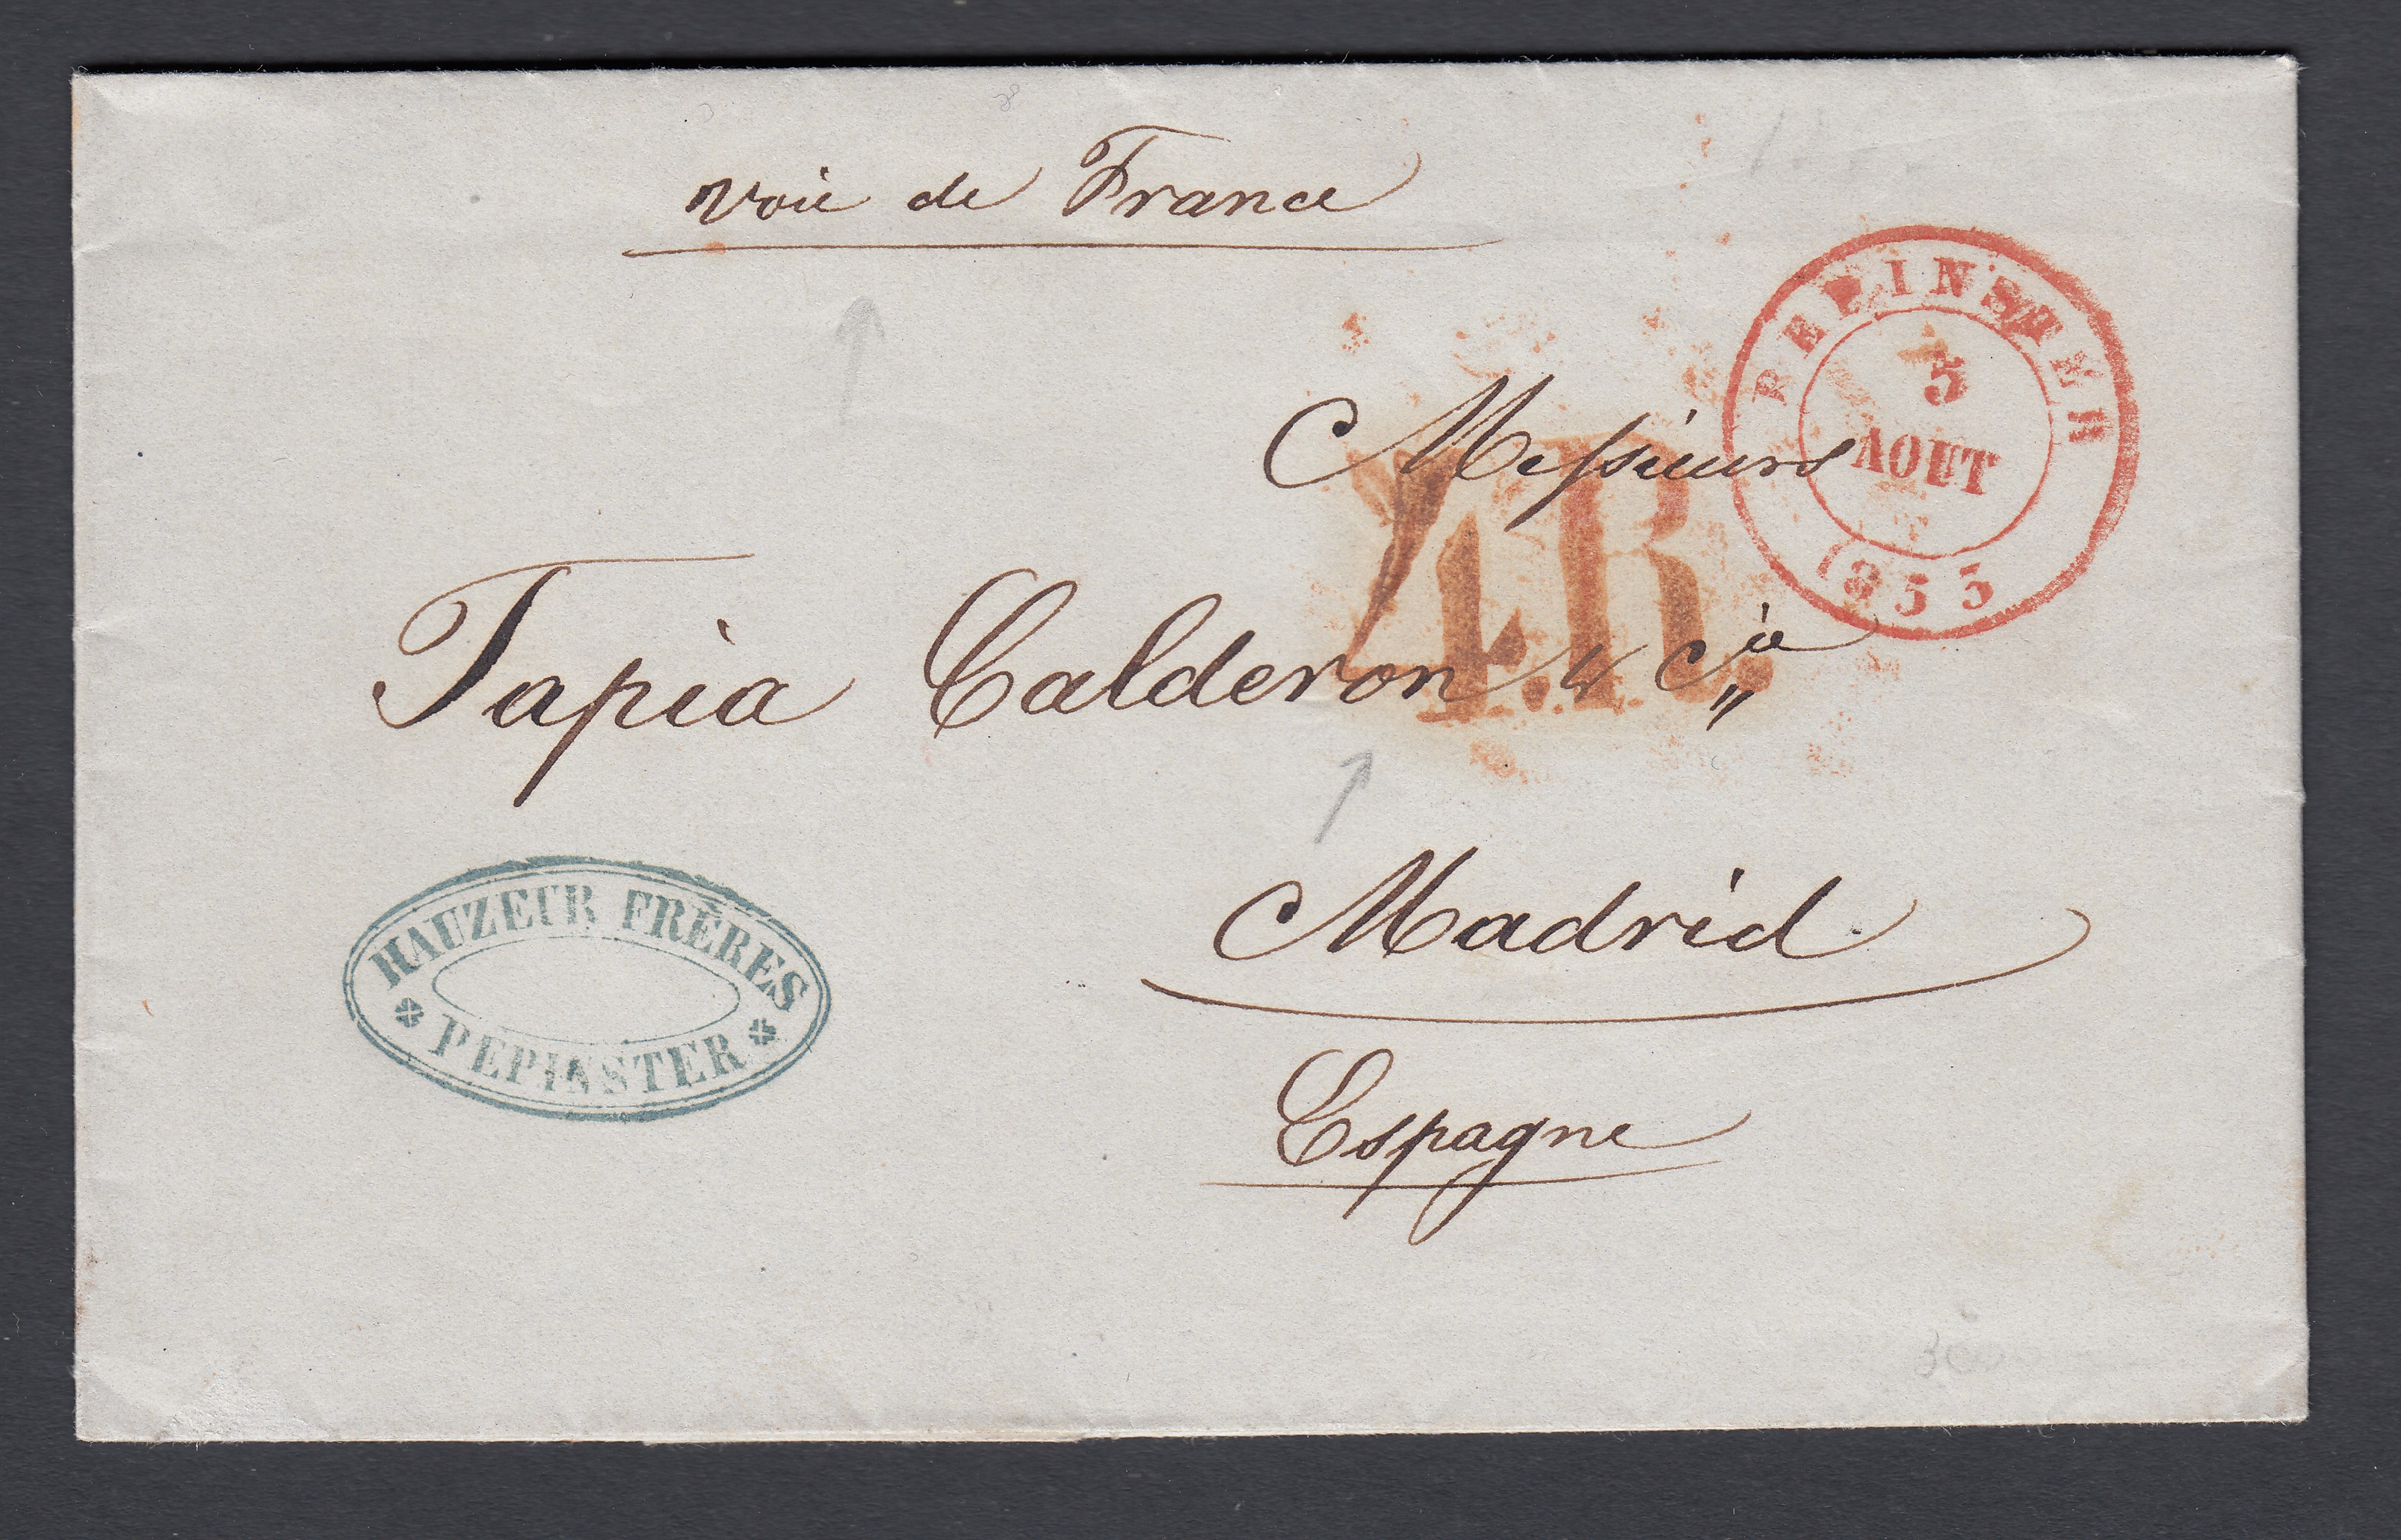 voie de France
PEPINSTER
5
AOUT
1853
4.R.
Messieurs
Tapia Calderon & Cia
HAUZEUR FRÈRES
PEPINSTER
Madrid
Espagne